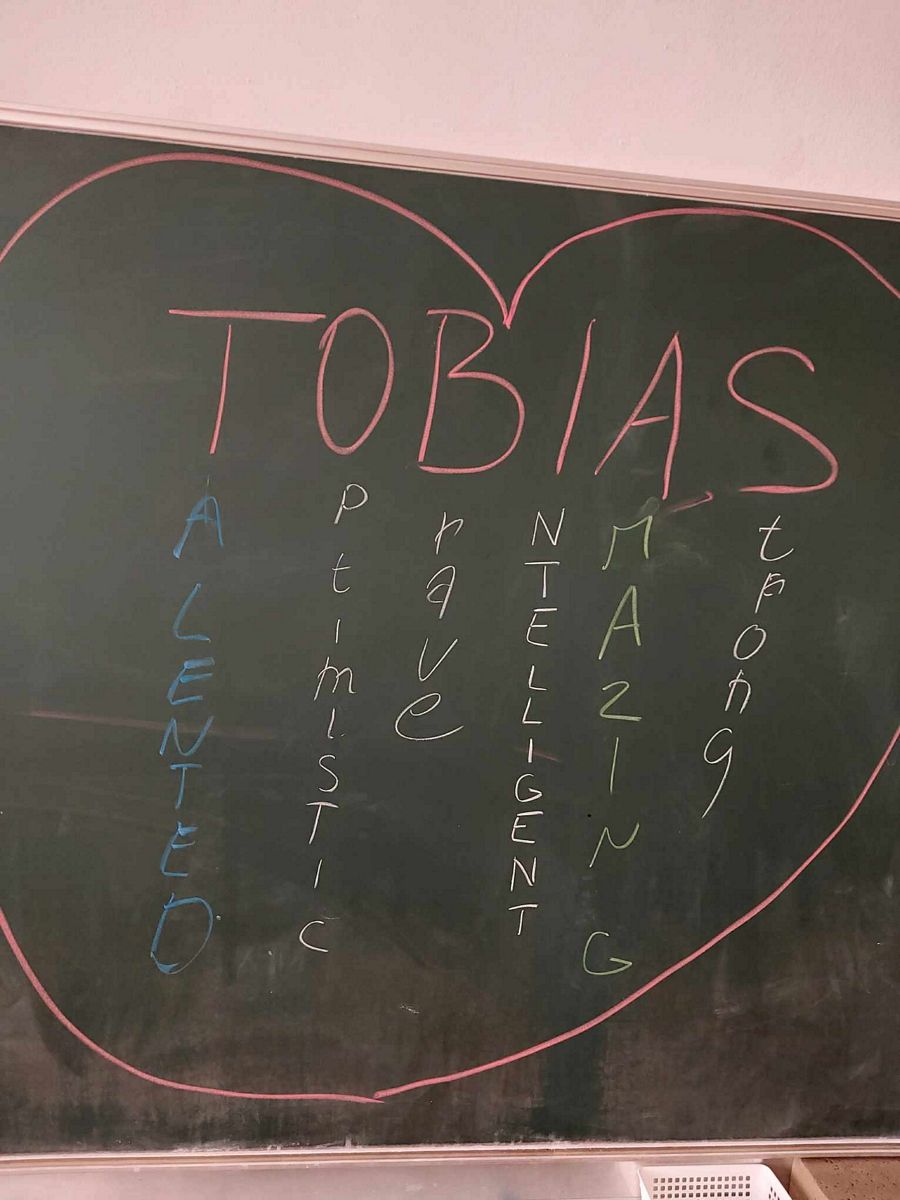 TOBIAS
ALENTED
PtimISTIC
rave
NTELLIGENT
MAZING
trong